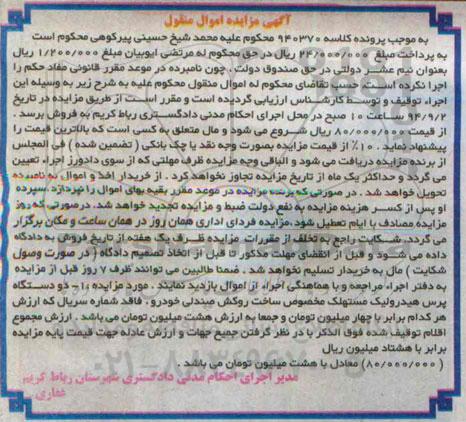 آگهی مزایده اموال منقول
به موجب پرونده کلاسه ۹۴۰۳۷۰ محکوم علیه محمد شیخ حسینی پیرکوهی محکوم است
به پرداخت مبلغ ۲۴/۰۰۰/۰۰۰ ریال در حق محکوم له مرتضی ایوبیان مبلغ ۱/۲۰۰/۰۰۰ ریال
بعنوان نیم عشر دولتی در حق صندوق دولت . چون نامبرده در موعد مقرر قانونی مفاد حکم را
اجرا نکرده است حسب تقاضای محکوم له اموال منقول محکوم علیه به شرح زیر به وسیله این
اجراء توقیف و توسط کارشناس ارزیابی گردیده است و مقرر است از طریق مزایده در تاریخ
۹۴/۹/۲ ساعت ۱۰ صبح در محل اجرای احکام مدنی دادگستری رباط کریم به فروش برسد .
از قیمت ۸۰/۰۰۰/۱۰۰ ریال شروع می شود و مال متعلق به کسی است که بالاترین قیمت را
پیشنهاد نماید . ۱۰٪ از قیمت مزایده بصورت وجه نقد یا چک بانکی ( تضمین شده ) فی المجلس
از برنده مزایده دریافت می شود و الباقی وجه مزایده ظرف مهلتی که از سوی دادورز اجراء تعیین
می گردد وحداکثر یک ماه از تاریخ مزایده تجاوز نخواهد کرد . از خریدار اخذ و اموال به نامبرده
تحویل خواهد شد . در صورتی که برنده مزایده در موعد مقرر بقیه بهای اموال را نپردازد سپرده
او پس از کسر هزینه مزایده به نفع دولت ضبط و مزایده تجدید خواهد شد. درصورتی که روز
مزایده مصادف با ایام تعطیل شود ،مزایده فردای اداری همان روز در همان ساعت و مکان برگزار
می گردد. شکایت راجع به تخلف از مقررات مزایده ظرف یک هفته از تاریخ فروش به دادگاه
داده می شود و قبل از انقضای مهلت مذکور تا قبل از اتخاذ تصمیم دادگاه ( در صورت وصول
شکایت ) مال به خریدار تسلیم نخواهد شد . ضمنا طالبین می توانند ظرف ۷ روز قبل از مزایده
به دفتر اجراء مراجعه و با هماهنگی اجراء از اموال بازدید نمایند . مورد مزایده :۱- دو دستگاه
پرس هیدرولیک مستهلک مخصوص ساخت روکش صندلی خودرو ، فاقد شماره سریال که ارزش
هر کدام برابر با چهار میلیون تومان و جمعا به ارزش هشت میلیون تومان می باشد . ارزش مجموع
اقلام توقیف شده فوق الذکر با در نظر گرفتن جمیع جهات و ارزش عادله جهت قیمت پایه مزایده
برابر با هشتاد میلیون ریال
( ۸۰/۰۰۰/۰۰۰) معادل با هشت میلیون تومان می باشد .
مدیر اجرای احکام مدنی دادگستری شهرستان رباط کریم
غفاری